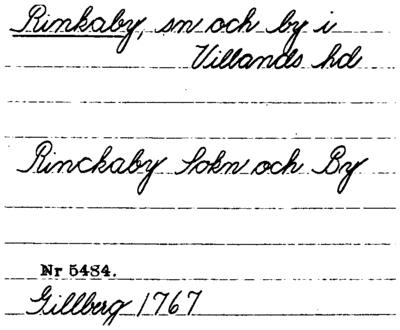 Rinkaby, sn och by i
Villands hd
Rinckaby Sokn och By
Nr 5484.
Gillberg 1767